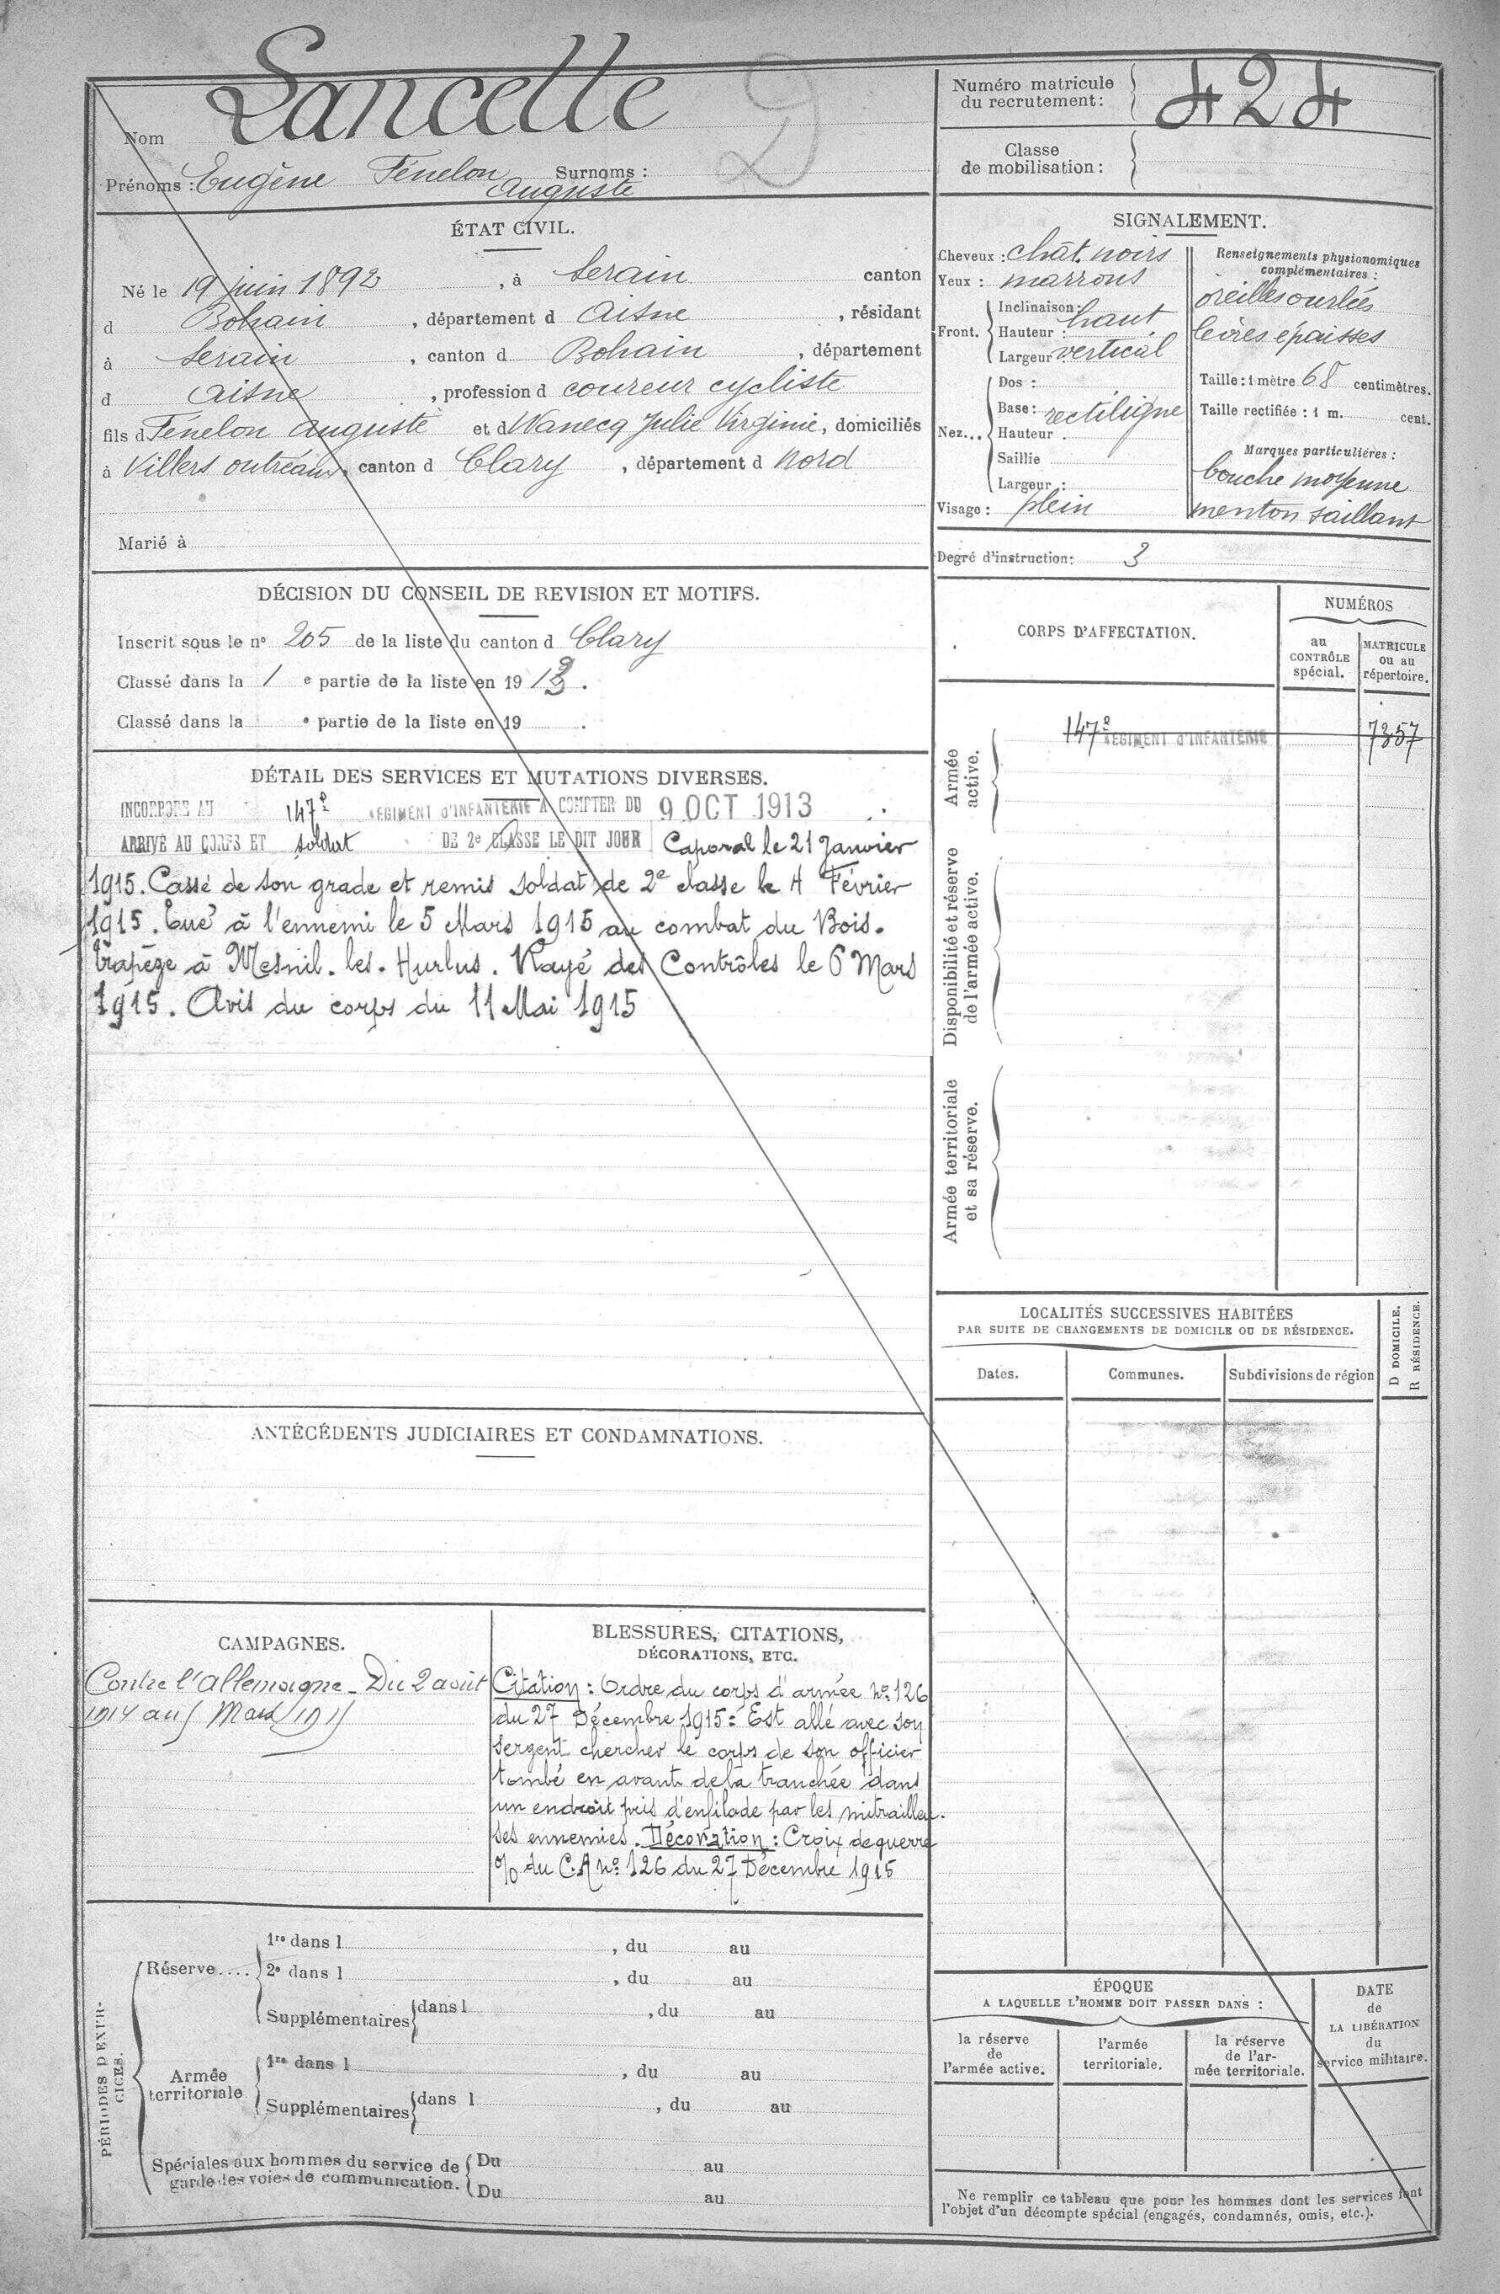 Nom Lancelle
Prénoms : Eugène Fénelon Surnoms :
Auguste
D
Numéro matricule
du recrutement : 424
Classe
de mobilisation :
ÉTAT CIVIL.
Né le 19 juin 1892, à Serain canton
d Bohain, département d Aisne, résidant
à Serain, canton d Bohain, département
d Aisne, profession d coureur cycliste
fils d Fénelon Auguste et d Wanecq Julie Virginie, domiciliés
à Villers outréaux, canton d Clary, département d Nord
Marié à
SIGNALEMENT.
Cheveux : chât. noirs
Yeux : marrons
Front. Inclinaison :
Hauteur : haut
Largeur : vertical
Nez... Dos :
Base : rectiligne
Hauteur
Saillie
Largeur :
Visage : plein
Renseignements physionomiques
complémentaires :
oreilles ourlées
lèvres épaisses
Taille : 1 mètre 68 centimètres.
Taille rectifiée : 1 m. cent.
Marques particulières :
bouche moyenne
menton saillant
Degré d'instruction : 3
DÉCISION DU CONSEIL DE REVISION ET MOTIFS.
Inscrit sous le n° 205 de la liste du canton d Clary
Classé dans la 1 e partie de la liste en 19 13.
Classé dans la e partie de la liste en 19 .
DÉTAIL DES SERVICES ET MUTATIONS DIVERSES.
INCORPORÉ AU 147e RÉGIMENT D'INFANTERIE A COMPTER DU 9 OCT 1913
ARRIVÉ AU CORPS ET soldat DE 2e CLASSE LE DIT JOUR Caporal le 21 Janvier
1915. Cassé de son grade et remis soldat de 2e classe le 4 Février
1915. Tué à l'ennemi le 5 Mars 1915 au combat du Bois.
trapèze à Mesnil. les. Hurlus. Rayé des Contrôles le 6 Mars
1915. Avis du corps du 11 Mai 1915
CORPS D'AFFECTATION.
NUMÉROS
au
CONTRÔLE
spécial.
MATRICULE
ou au
répertoire.
Armée
active.
147e RÉGIMENT D'INFANTERIE 7357
Disponibilité et réserve
de l'armée active.
Armée territoriale
et sa réserve.
LOCALITÉS SUCCESSIVES HABITÉES
PAR SUITE DE CHANGEMENTS DE DOMICILE OU DE RÉSIDENCE.
Dates. Communes. Subdivisions de région
D DOMICILE.
R RÉSIDENCE.
ANTÉCÉDENTS JUDICIAIRES ET CONDAMNATIONS.
CAMPAGNES.
Contre l'allemagne - Du 2 août
1914 au 5 Mars 1915
BLESSURES, CITATIONS,
DÉCORATIONS, ETC.
Citation : Ordre du corps d'armée No 126
du 27 Décembre 1915 : Est allé avec son
sergent chercher le corps de son officier
tombé en avant de la tranchée dans
un endroit pris d'enfilade par les mitrailleu-
ses ennemies. Décoration : Croix de guerre
% du C.A no 126 du 27 Décembre 1915
PÉRIODES D'EXER-
CICES.
Réserve....
1re dans l , du au
2e dans l , du au
Supplémentaires dans l , du au
Armée
territoriale
1re dans l , du au
Supplémentaires dans l , du au
Spéciales aux hommes du service de
garde des voies de communication.
Du au
Du au
ÉPOQUE
A LAQUELLE L'HOMME DOIT PASSER DANS :
la réserve
de
l'armée active.
l'armée
territoriale.
la réserve
de l'ar-
mée territoriale.
DATE
de
LA LIBÉRATION
du
service militaire.
Ne remplir ce tableau que pour les hommes dont les services font
l'objet d'un décompte spécial (engagés, condamnés, omis, etc.).